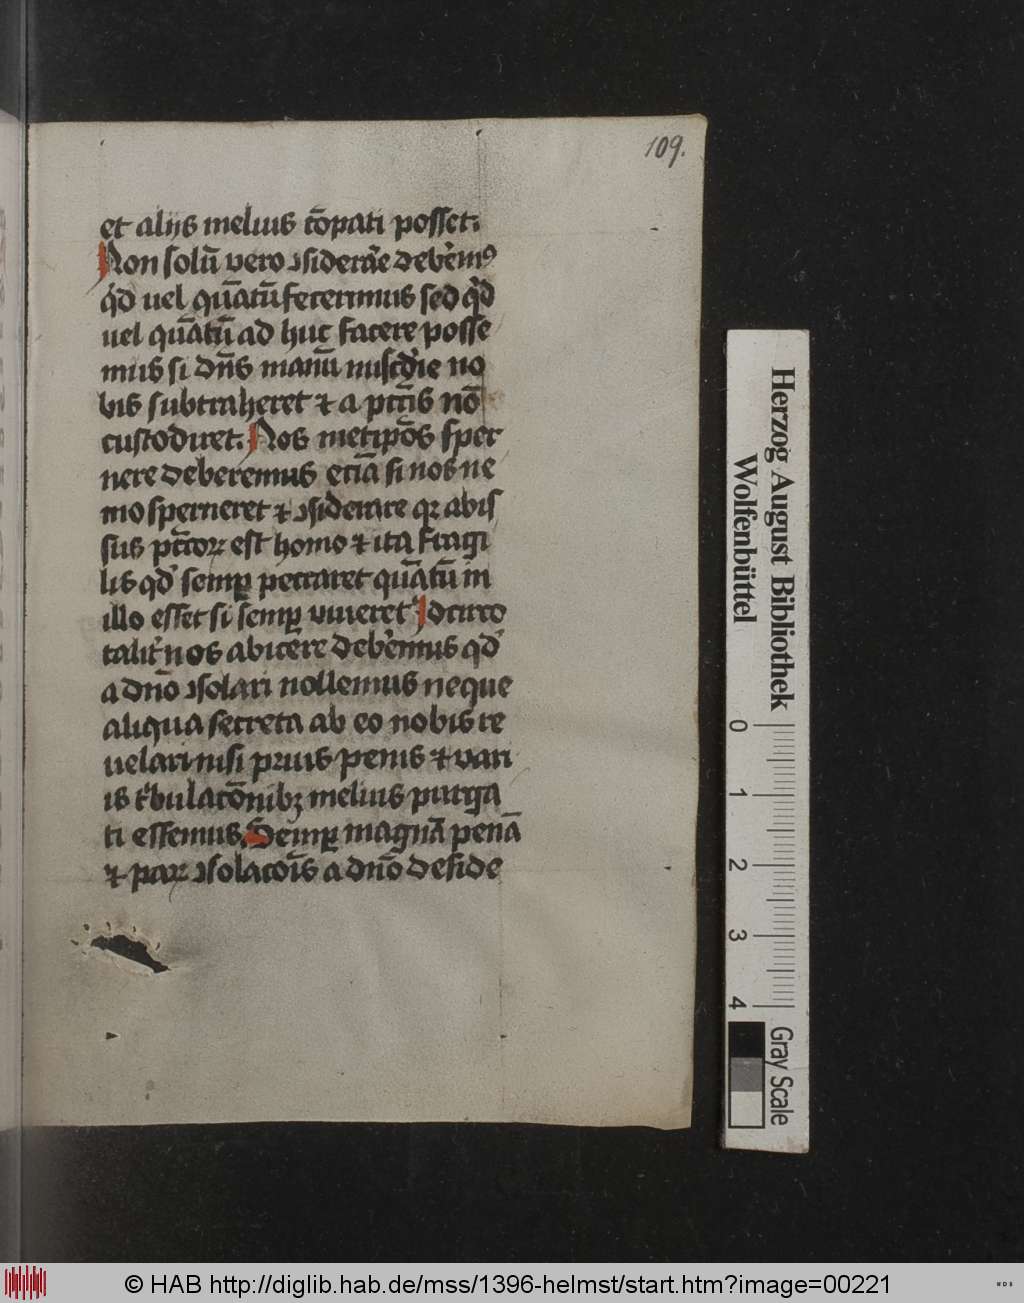 109.
et aliis melius cōpati posset.
Non solū vero ↄsiderare debem⁹
qd vel quātū fecerimus sed qd
vel quātū ad huc facere posse
mus si dn̄s manū mīscdīe no
bis subtraheret ⁊ a pctīs nō
custodiret. Nos metipōs sper
nere deberemus eciā si nos ne
mo sperneret ⁊ ↄsiderare qꝛ abis
sus pctōꝝ est homo ⁊ ita fragi
lis qd semꝑ peccaret quātū in
illo esset si semꝑ viueret Idcirco
talit nos abicere debemus qd
a dn̄o ↄsolari nollemus neque
aliqua secreta ab eo nobis re
uelari nisi prius penis ⁊ vari
is tbulacōnibꝫ melius purga
ti essemus. Semꝑ magnā penā
⁊ paꝝ ↄsolacōis a dn̄o deside
Herzog August Bibliothek
Wolfenbüttel
0 1 2 3 4
Gray Scale
© HAB http://diglib.hab.de/mss/1396-helmst/start.htm?image=00221